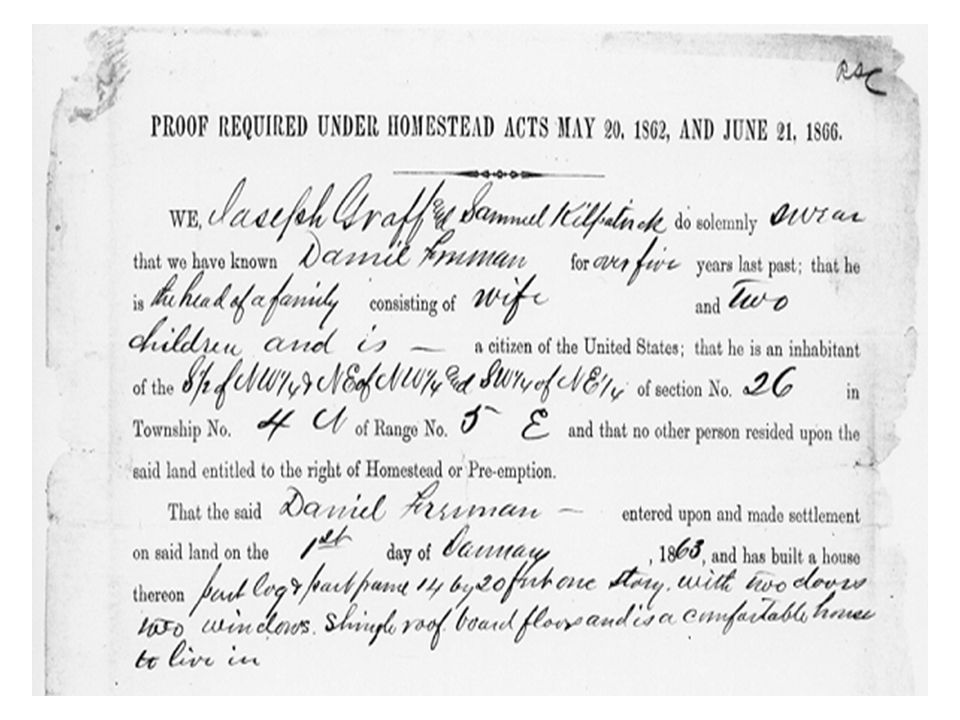 RSC
PROOF REQUIRED UNDER HOMESTEAD ACTS MAY 20, 1862, AND JUNE 21, 1866.
WE, Joseph Graff and Samuel Kilpatrick do solemnly swear
that we have known Daniel Freeman for over five years last past; that he
is the head of a family consisting of wife and two
children and is — a citizen of the United States; that he is an inhabitant
of the S½ of NW¼ & NE of NW¼ and SW¼ of NE¼ of section No. 26 in
Township No. 4 N of Range No. 5 E and that no other person resided upon the
said land entitled to the right of Homestead or Pre-emption.
That the said Daniel Freeman — entered upon and made settlement
on said land on the 1st day of January, 1863, and has built a house
thereon part log & part frame 14 by 20 feet one story. with two doors
two windows. Shingle roof. board floors and is a comfortable house
to live in